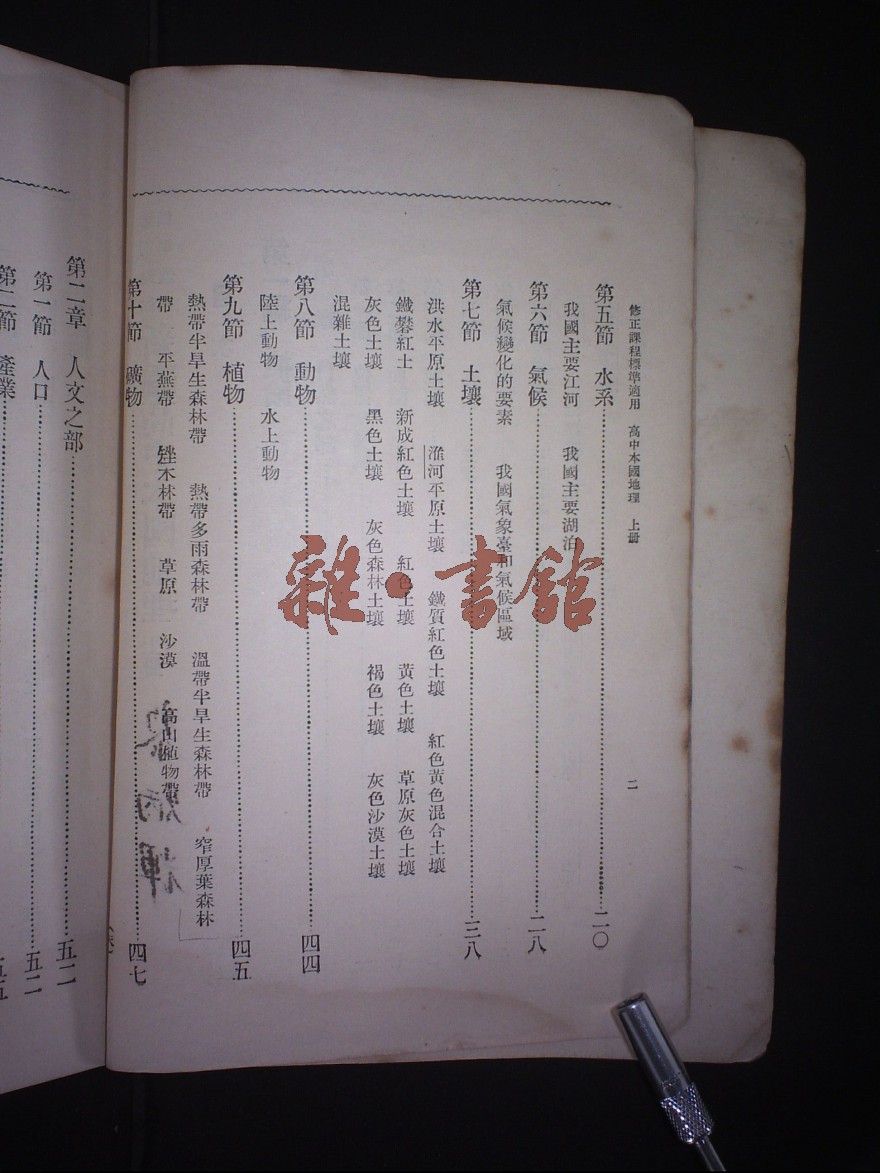 修正課程標準適用 高中本國地理 上册 二
第五節 水系 二〇
我國主要江河 我國主要湖泊
第六節 氣候 二八
氣候變化的要素 我國氣象臺和氣候區域
第七節 土壤 三八
洪水平原土壤 淮河平原土壤 鐵質紅色土壤 紅色黃色混合土壤
鐵礬紅土 新成紅色土壤 紅色土壤 黃色土壤 草原灰色土壤
灰色土壤 黑色土壤 灰色森林土壤 褐色土壤 灰色沙漠土壤
混雜土壤
第八節 動物 四四
陸上動物 水上動物
第九節 植物 四五
熱帶半旱生森林帶 熱帶多雨森林帶 溫帶半旱生森林帶 窄厚葉森林
帶 平蕪帶 矬木林帶 草原 沙漠 高山植物帶
第十節 礦物 四七
第二章 人文之部 五二
第一節 人口 五二
第二節 產業
雜·書館